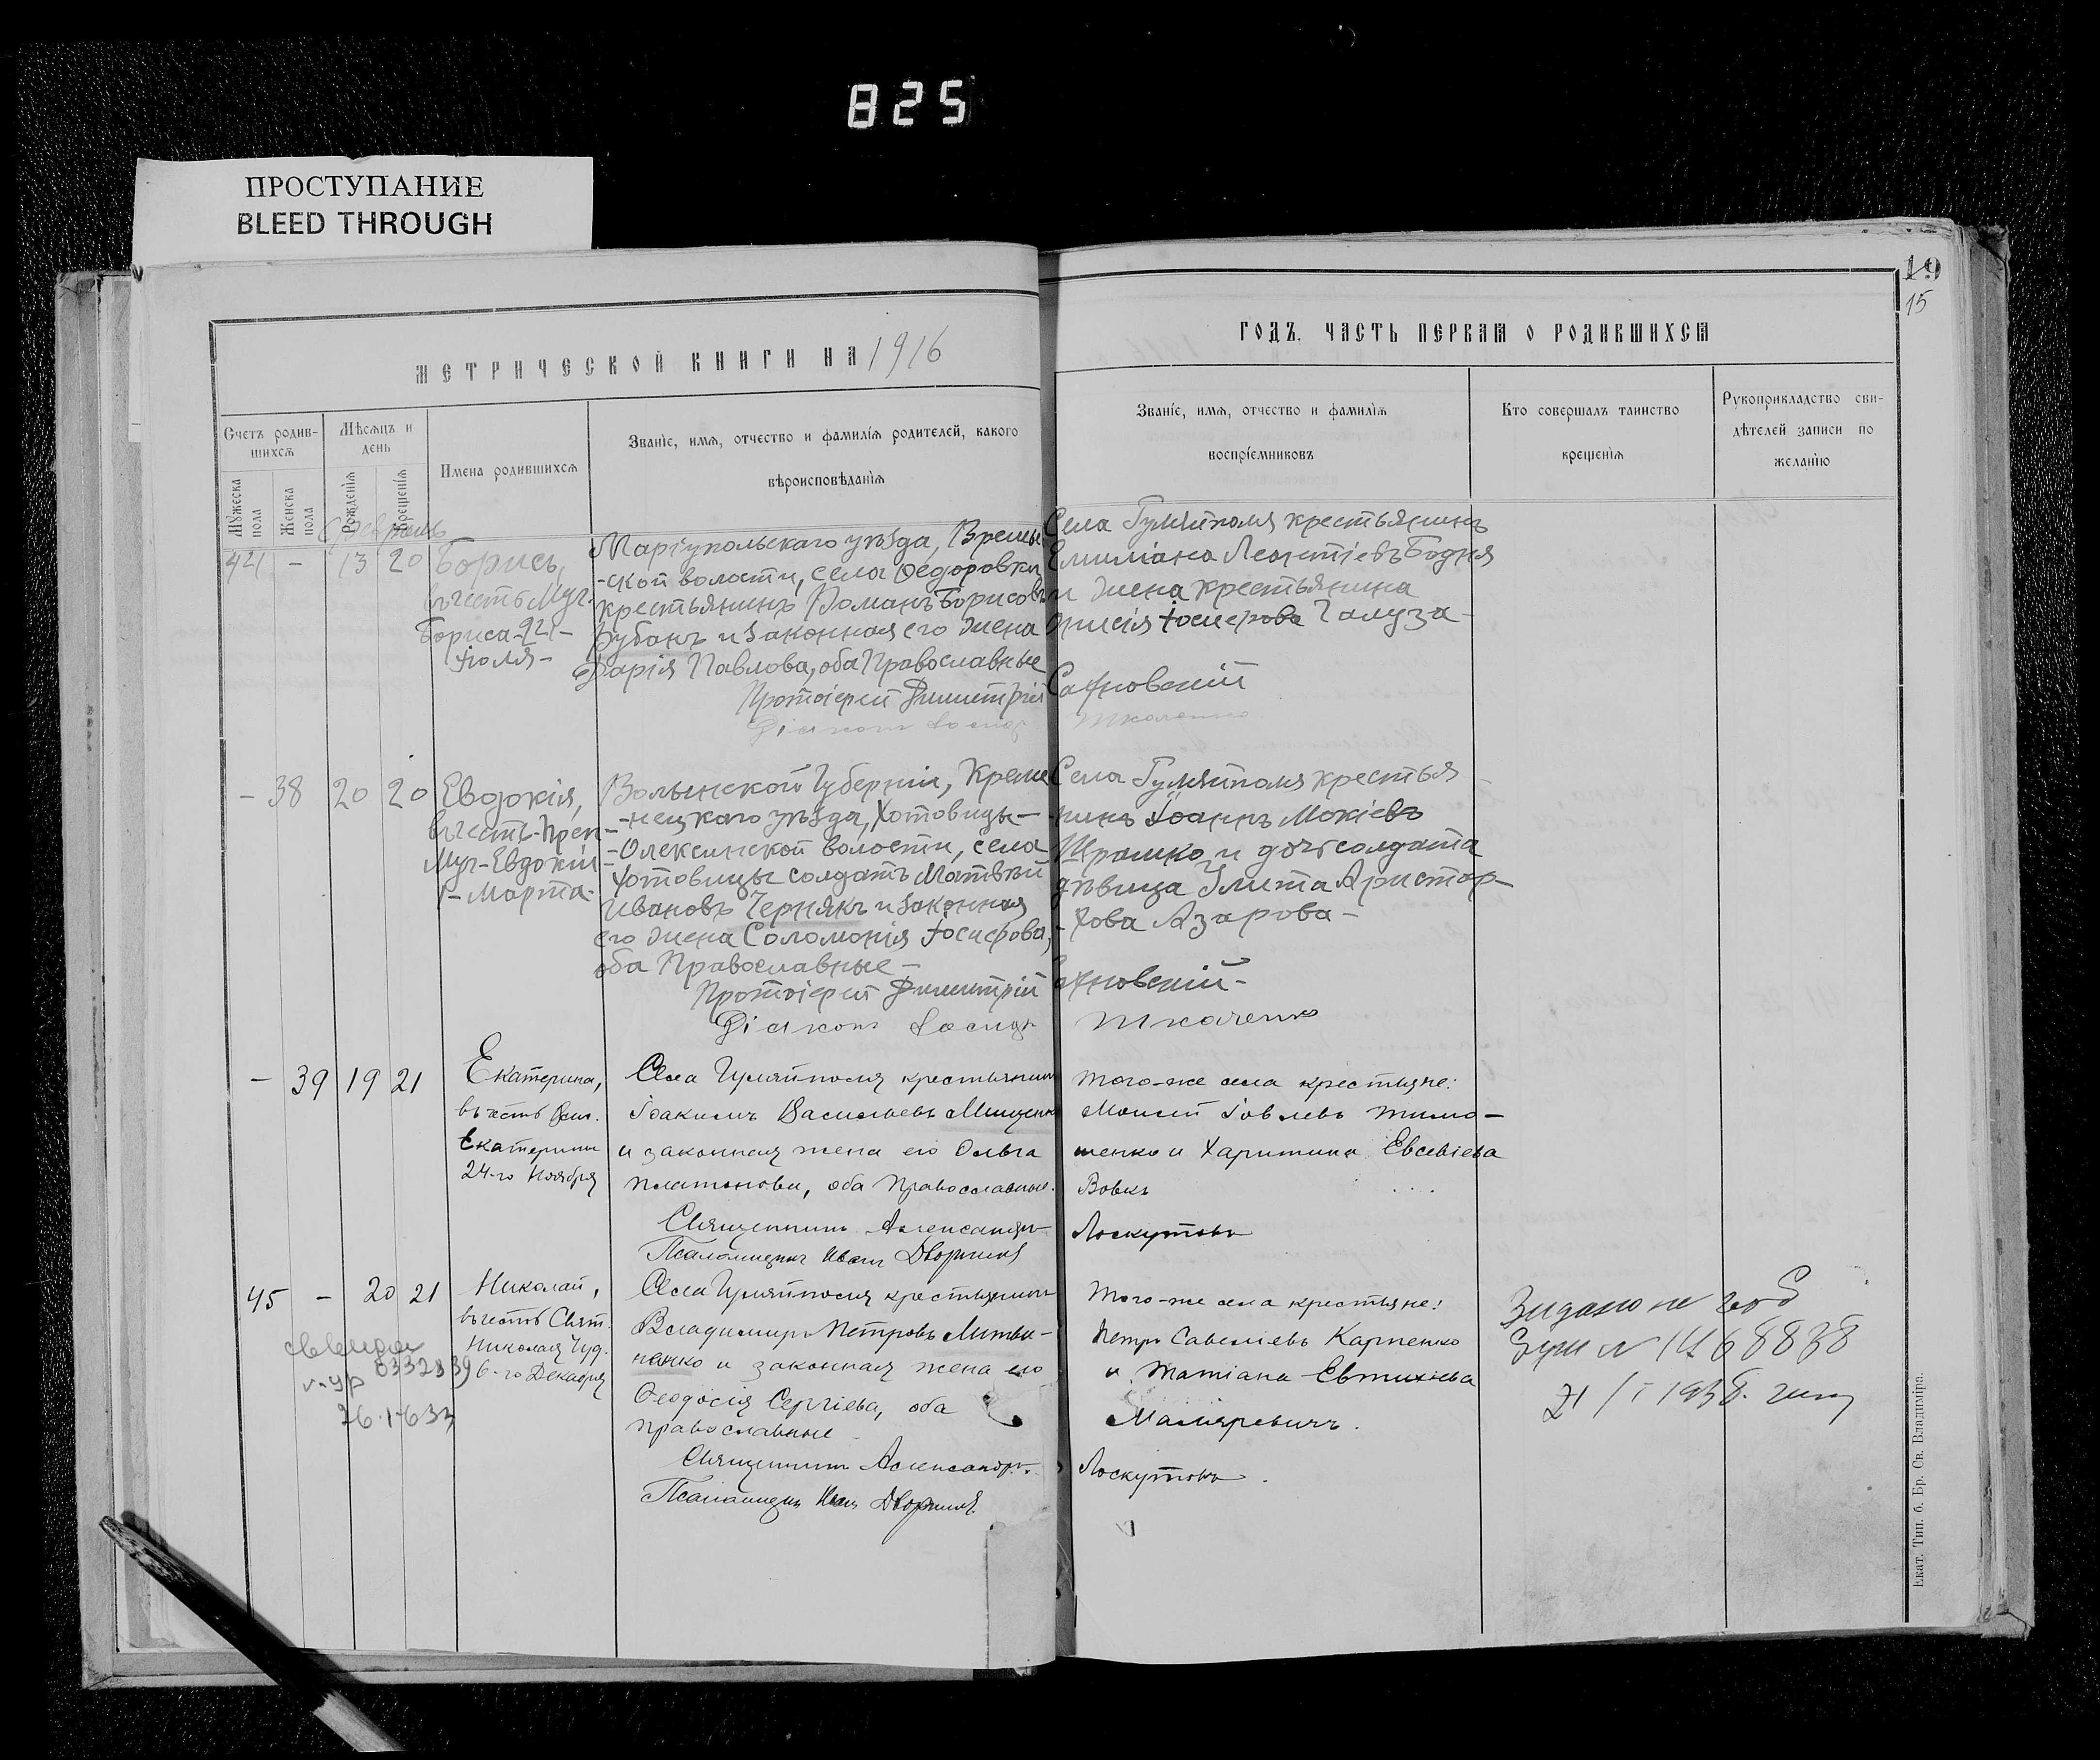 825
ПРОСТУПАНИЕ
BLEED THROUGH
19
15
МЕТРИЧЕСКОЙ КНИГИ НА 1916
ГОДЪ. ЧАСТЬ ПЕРВАЯ О РОДИВШИХСЯ
Счетъ родив-
шихся
Мужеска пола
Женска пола
Мѣсяцъ и
день
Рожденія
Крещенія
Имена родившихся
Званіе, имя, отчество и фамилія родителей, какого
вѣроисповѣданія
Званіе, имя, отчество и фамилія
воспріемниковъ
Кто совершалъ таинство
крещенія
Рукоприкладство сви-
дѣтелей записи по
желанію
Февраль
44 - 13 20
Борисъ,
въ честь Муч.
Бориса-24-
Іюля-
Маріупольскаго уѣзда, Времьев
-ской волости, села Ѳедоровки
крестьянинъ Романъ Борисовъ
Зубанъ и законная его жена
Дарія Павлова, оба Православные
Протоіерей Димитрій Сахновскій
Діаконъ Іосифъ Ткаченко
Села Гуляйполя крестьянинъ
Емиліанъ Леонтіевъ Бодня
и жена крестьянина
Анисія Іосифова Галуза-
- 38 20 20
Евдокія,
въ честь Преп-
Муч-Евдокіи
1-Марта-
Волынской Губерніи, Креме
-нецкаго уѣзда, Хотовицы-
-Олексинской волости, села
Хотовицы солдатъ Матвѣй
Ивановъ Чернякъ и законная
его жена Соломонія Іосифова,
оба Православные-
Протоіерей Димитрій Сахновскій-
Діаконъ Іосифъ Ткаченко
Села Гуляйполя крестья
-нинъ Іоаннъ Мокіевъ
Шрамко и дочь солдата
дѣвица Улита Аристар-
-хова Азарова-
- 39 19 21
Екатерина,
въ честь Вел.
Екатерины
24-го Ноября
Села Гуляйполя крестьянинъ
Іоакимъ Васильевъ Мищенко
и законная жена его Ольга
Платонова, оба Православные.
Священникъ Александръ Лоскутовъ
Псаломщикъ Иванъ Дворник
того-же села крестьяне:
Моисей Іовлевъ Тимо-
шенко и Харитина Евсевіева
Вовкъ
45 - 20 21
Николай,
въ честь Свят.
Николая Чуд.
6-го Декабря
Села Гуляйполя крестьянинъ
Владимиръ Петровъ Литви-
ненко и законная жена его
Ѳеодосія Сергіева, оба
православные
Священникъ Александръ Лоскутовъ
Псаломщикъ Иванъ Дворник
того-же села крестьяне:
Петръ Савеліевъ Карпенко
и Татіана Евтихіева
Маляревичъ.
Екат. Тип. б. Бр. Св. Владиміра.